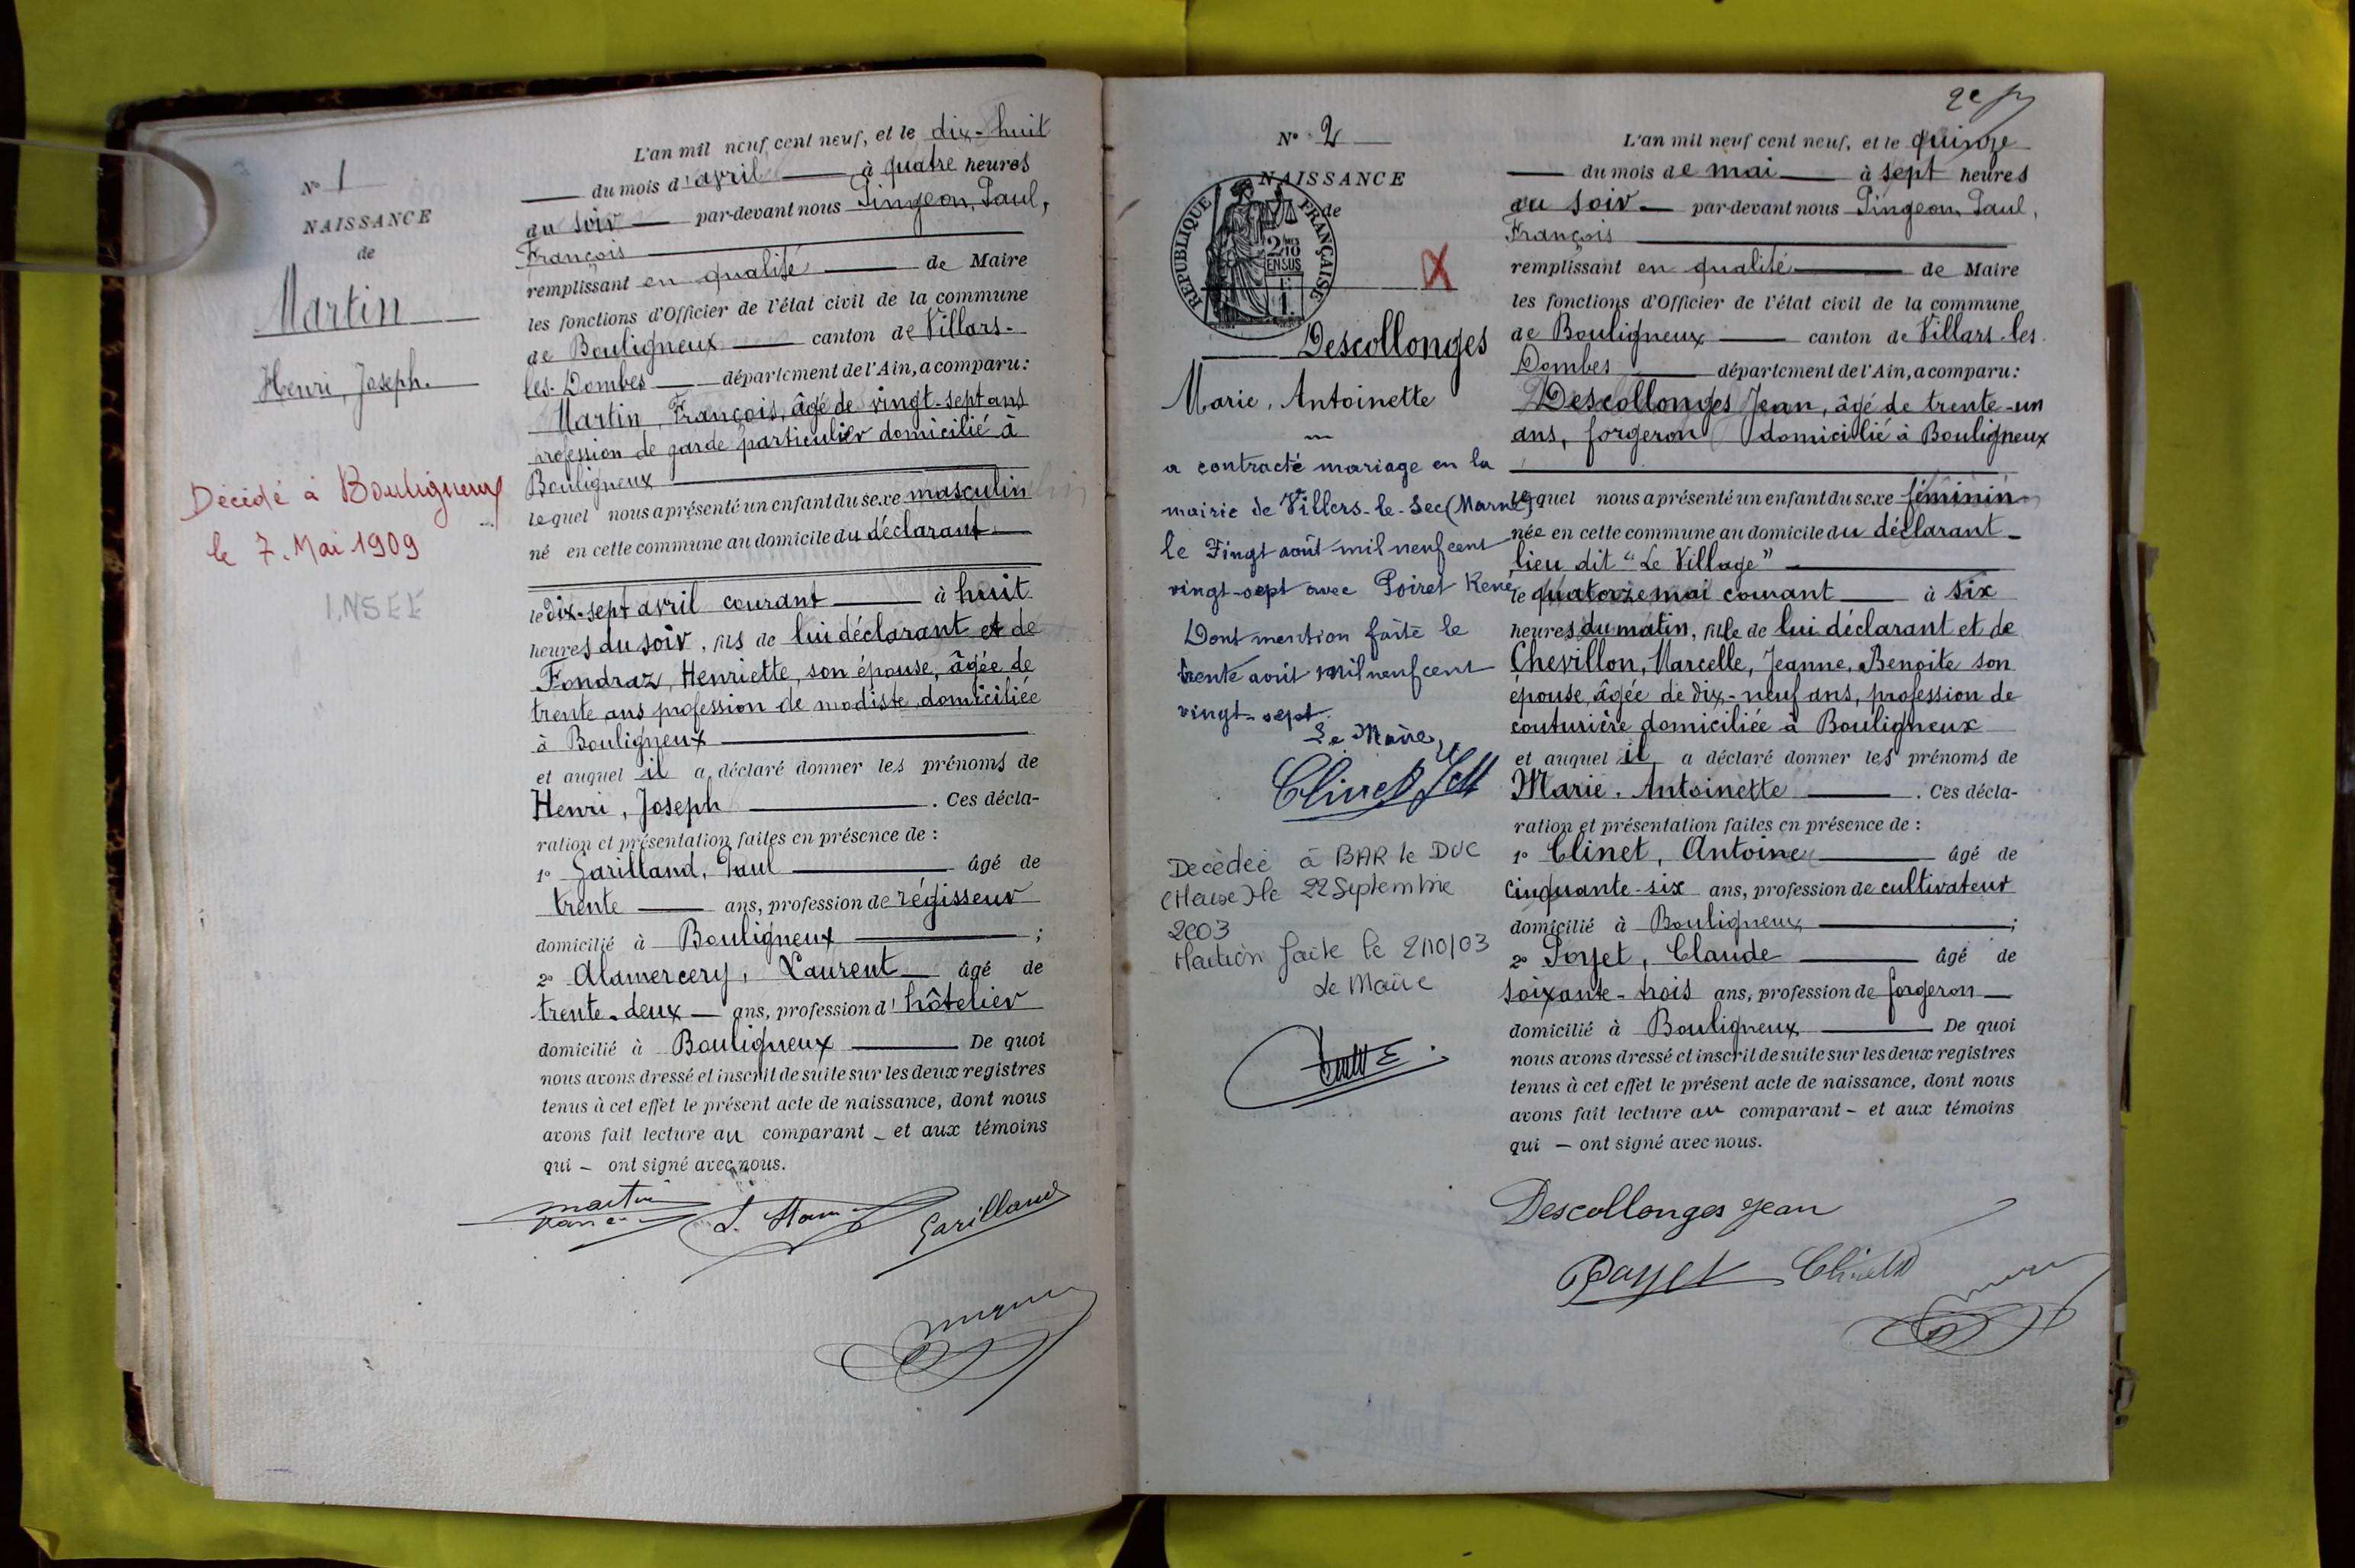 N° 1
NAISSANCE
de
Martin
Henri, Joseph.
Décédé à Bouligneux
le 7. Mai 1909
INSEE
L'an mil neuf cent neuf, et le dix-huit
du mois d'avril à quatre heures
du soir par-devant nous Pingeon, Paul,
François
remplissant en qualité de Maire
les fonctions d'Officier de l'état civil de la commune
de Bouligneux canton de Villars-
les-Dombes département de l'Ain, a comparu :
Martin, François, âgé de vingt-sept ans
profession de garde particulier domicilié à
Bouligneux
lequel nous a présenté un enfant du sexe masculin
né en cette commune au domicile du déclarant
le dix-sept avril courant à huit
heures du soir, fils de lui déclarant et de
Fondraz, Henriette, son épouse, âgée de
trente ans profession de modiste domiciliée
à Bouligneux
et auquel il a déclaré donner les prénoms de
Henri, Joseph . Ces décla-
ration et présentation faites en présence de :
1° Garilland, Paul âgé de
trente ans, profession de régisseur
domicilié à Bouligneux ;
2° Alamercery, Laurent âgé de
trente-deux ans, profession d'hôtelier
domicilié à Bouligneux De quoi
nous avons dressé et inscrit de suite sur les deux registres
tenus à cet effet le présent acte de naissance, dont nous
avons fait lecture au comparant - et aux témoins
qui - ont signé avec nous.
Martin
Garilland
N° 2
NAISSANCE
de
RÉPUBLIQUE FRANÇAISE
2/10 EN SUS
Descollonges
Marie, Antoinette
a contracté mariage en la
mairie de Villers-le-Sec (Marne)
le Vingt août mil neuf cent
vingt-sept avec Poiret René
Dont mention faite le
trente août mil neuf cent
vingt-sept.
Le Maire,
Clinet
Décédée à BAR le DUC
(Meuse) le 22 Septembre
2003
Mention faite le 2/10/03
Le Maire
L'an mil neuf cent neuf, et le quinze
du mois de mai à sept heures
du soir par-devant nous Pingeon, Paul,
François
remplissant en qualité de Maire
les fonctions d'Officier de l'état civil de la commune
de Bouligneux canton de Villars-les-
Dombes département de l'Ain, a comparu :
Descollonges Jean, âgé de trente-un
ans, forgeron domicilié à Bouligneux
lequel nous a présenté un enfant du sexe féminin
née en cette commune au domicile du déclarant
lieu dit "Le Village"
le quatorze mai courant à six
heures du matin, fille de lui déclarant et de
Chevillon, Marcelle, Jeanne, Benoite son
épouse, âgée de dix-neuf ans, profession de
couturière domiciliée à Bouligneux
et auquel il a déclaré donner les prénoms de
Marie, Antoinette . Ces décla-
ration et présentation faites en présence de :
1° Clinet, Antoine âgé de
cinquante-six ans, profession de cultivateur
domicilié à Bouligneux ;
2° Poyet, Claude âgé de
soixante-trois ans, profession de forgeron
domicilié à Bouligneux De quoi
nous avons dressé et inscrit de suite sur les deux registres
tenus à cet effet le présent acte de naissance, dont nous
avons fait lecture au comparant - et aux témoins
qui - ont signé avec nous.
Descollonges Jean
Clinet